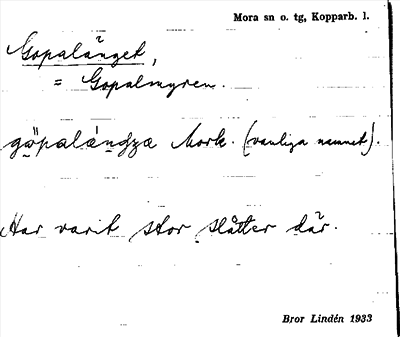 Mora sn o. tg, Kopparb. l.
Gopalänget,
= Gopalmyren.
gö̀palǽŋgʒæ Mork. (vanliga namnet).
Har varit stor slåtter där.
Bror Lindén 1933